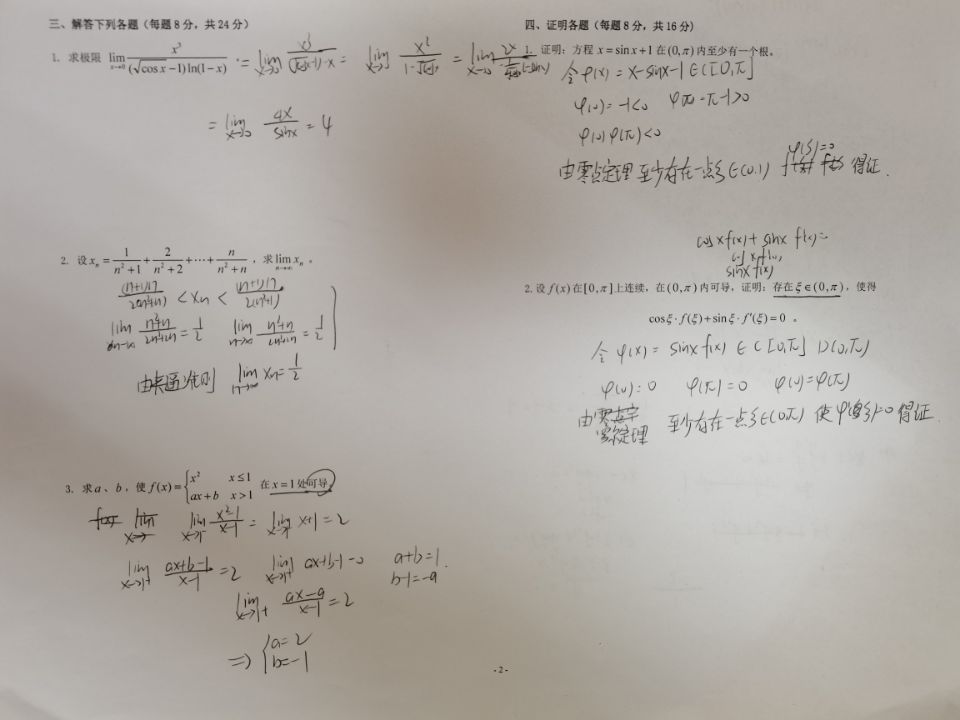 三、解答下列各题（每题8分，共24分）
1. 求极限 lim x→0 x³/((√cos x −1)ln(1−x))
= lim x→0 4x/sinx = 4
2. 设 xₙ = 1/(n²+1) + 2/(n²+2) + ⋯ + n/(n²+n)，求 lim n→∞ xₙ。
(n+1)n/2(n²+n) < xn < (n+1)n/2(n²+1)
lim n→∞ n²+n/2n²+2n = 1/2 lim n→∞ n²+n/2n²+2n = 1/2
由夹逼准则 lim n→∞ xn = 1/2
3. 求a、b，使 f(x) = { x² x≤1 ; ax+b x>1 在 x=1 处可导。
lim x→1⁻ x²−1/x−1 = lim x→1⁻ x+1 = 2
lim x→1⁺ ax+b−1/x−1 = 2 lim x→1⁺ ax+b−1=0 a+b=1
b−1=−a
lim x→1⁺ ax−a/x−1 = 2
⇒ { a=2
b=−1
四、证明各题（每题8分，共16分）
1. 证明：方程 x = sin x +1 在 (0,π) 内至少有一个根。
令 φ(x) = x−sinx−1 ∈ C[0,π]
φ(0) = −1<0 φ(π) = π−1>0
φ(0)φ(π)<0
φ(ξ)=0
由零点定理 至少存在一点ξ∈(0,1) 得证.
cosxf(x) + sinx f(x)=
sinx f(x)
2. 设 f(x) 在 [0,π] 上连续，在 (0,π) 内可导，证明：存在 ξ∈(0,π)，使得
cosξ·f(ξ)+sinξ·f′(ξ)=0 。
令 φ(x) = sinx f(x) ∈ C[0,π] D(0,π)
φ(0)=0 φ(π)=0 φ(0)=φ(π)
定理 至少存在一点ξ∈(0π) 使φ′(ξ)=0 得证.
- 2 -